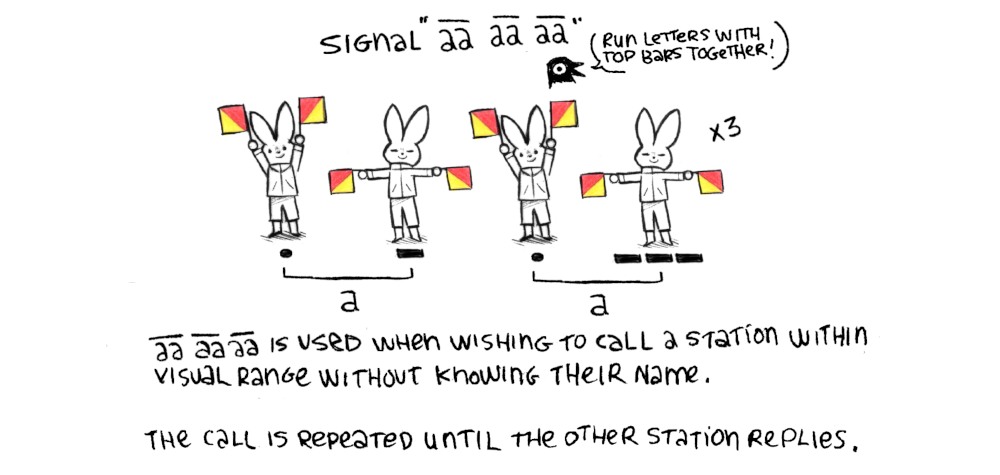 SIGNAL "a̅a̅ a̅a̅ a̅a̅"
(RUN LETTERS WITH
TOP BARS TOGETHER!)
x3
a a
a̅a̅ a̅a̅ a̅a̅ IS USED WHEN WISHING TO CALL A STATION WITHIN
VISUAL RANGE WITHOUT KNOWING THEIR NAME.
THE CALL IS REPEATED UNTIL THE OTHER STATION REPLIES.